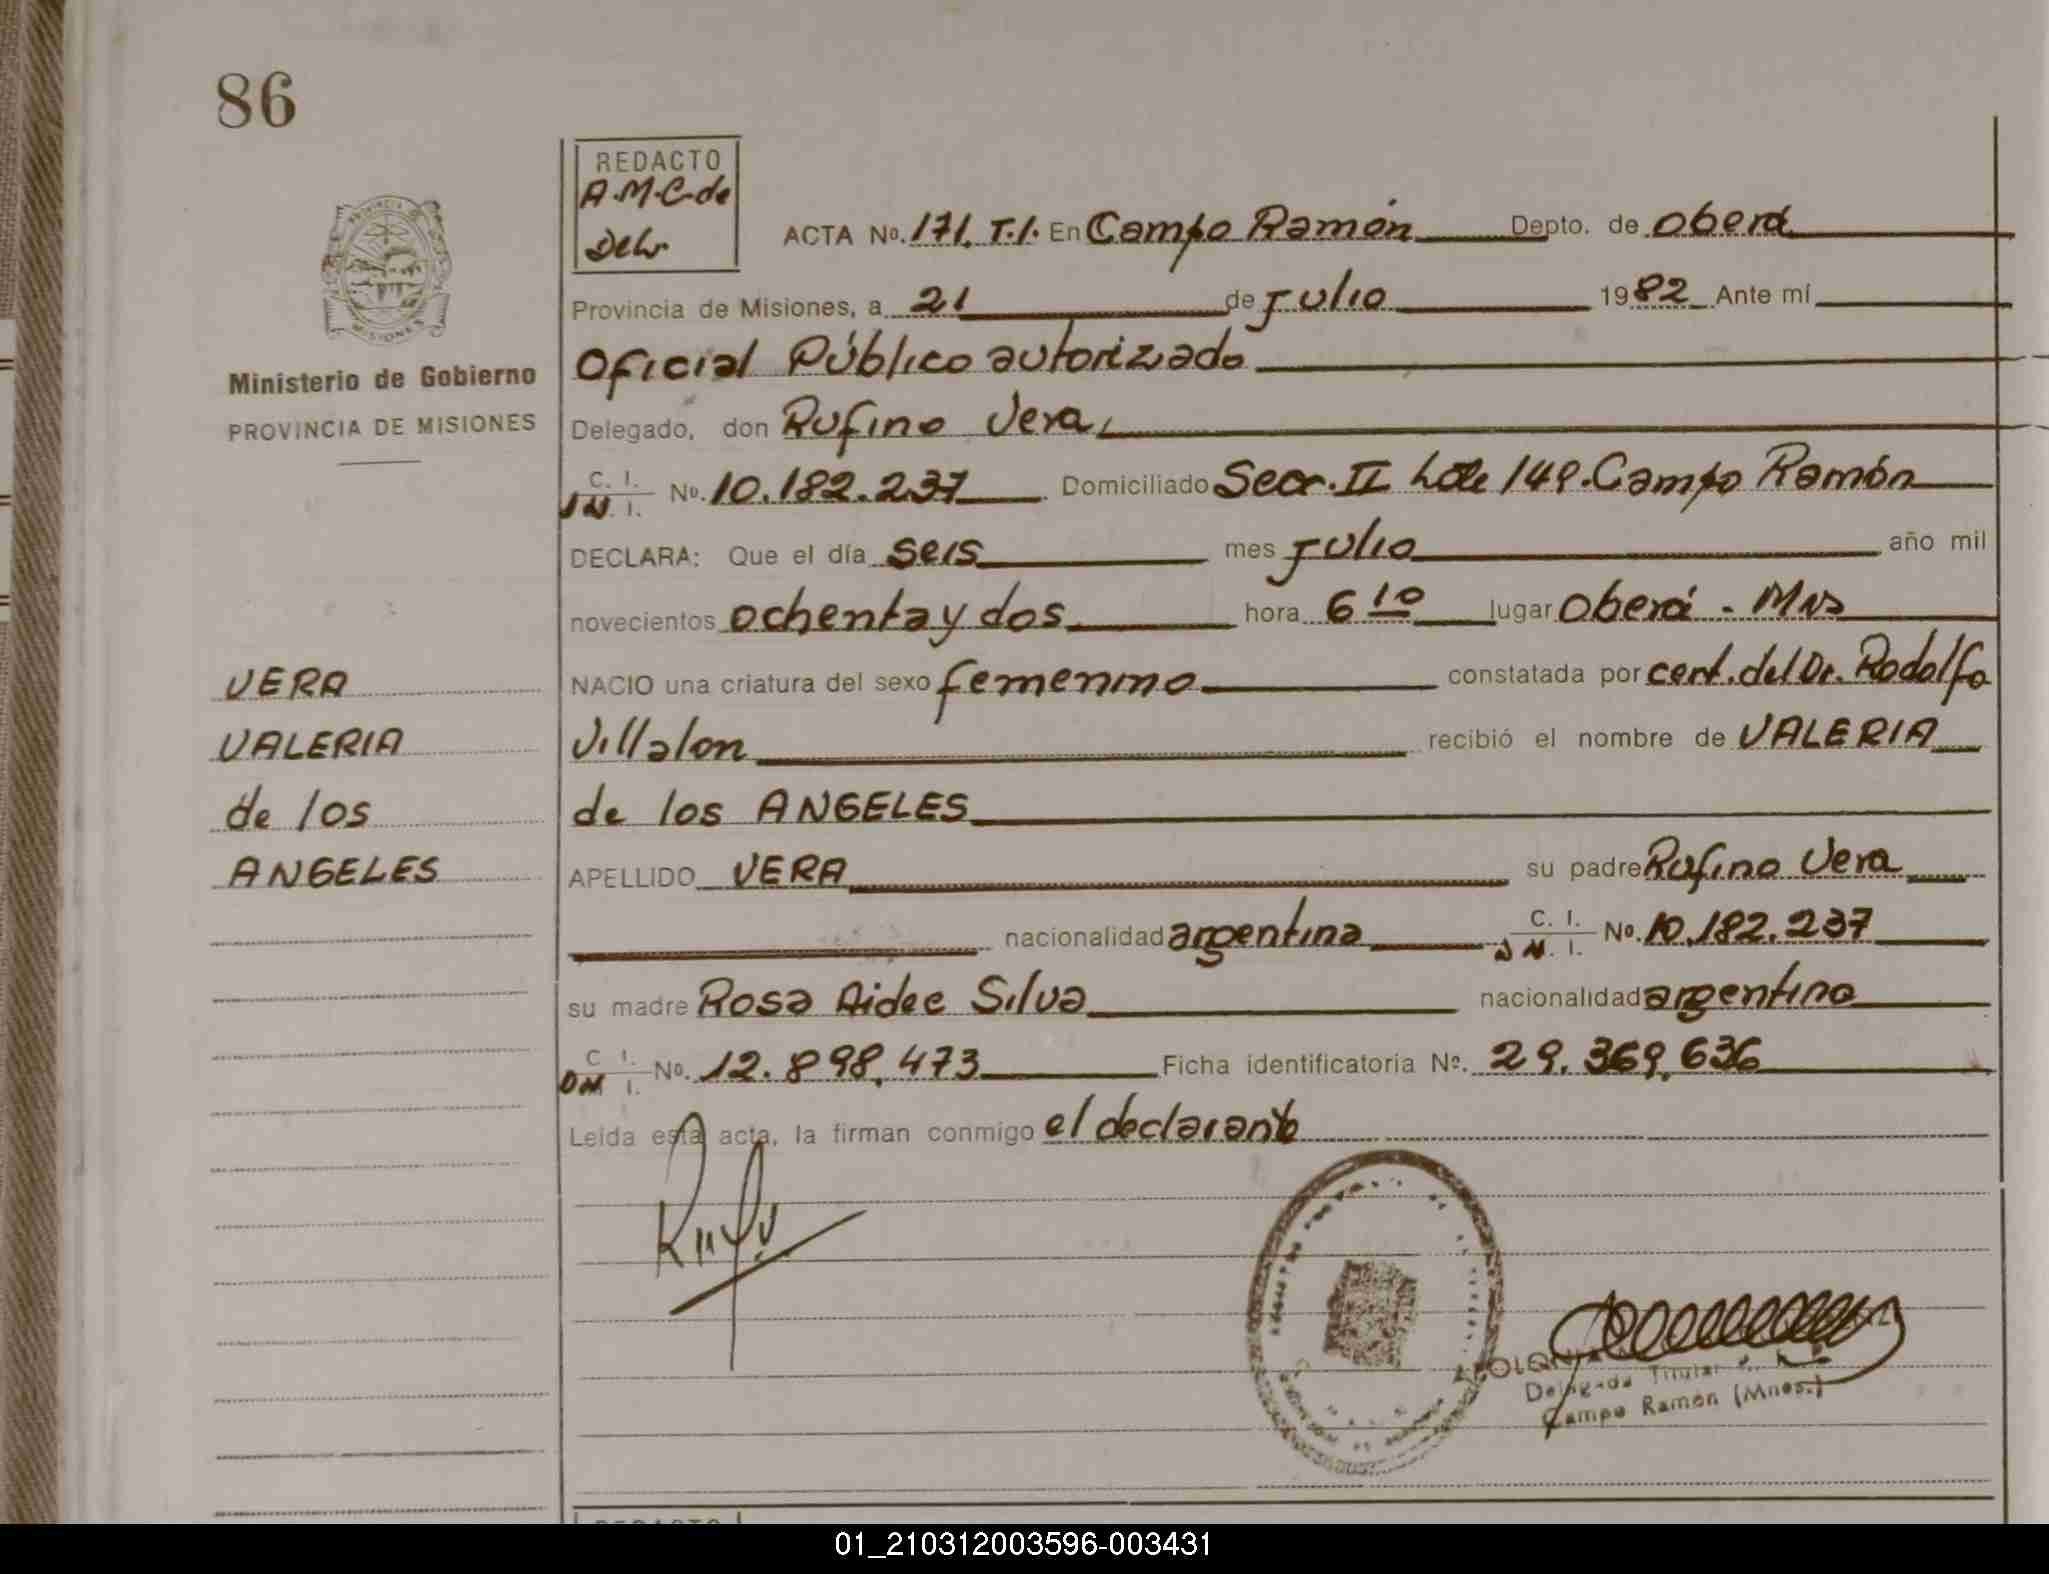 86
REDACTO
A.M.C. de
ACTA No. 171. T.I. En Campo Ramón Depto. de Oberá
Provincia de Misiones, a 21 de Julio 1982 Ante mí
Oficial Público autorizado
Delegado, don Rufino Vera,
C. I.
D N. I. No. 10.182.237 Domiciliado Secc. II Lote 149. Campo Ramón
DECLARA: Que el día seis mes Julio año mil
novecientos ochenta y dos hora 6 10 lugar Oberá - Mns
NACIO una criatura del sexo femenino constatada por cert. del Dr. Rodolfo
Villalon recibió el nombre de VALERIA
de los ANGELES
APELLIDO VERA su padre Rufino Vera
nacionalidad argentina C. I. D N. I. No. 10.182.237
su madre Rosa Aidee Silva nacionalidad argentina
C I. D N I. No. 12.898.473 Ficha identificatoria Nº. 29.369.636
Leida esta acta, la firman conmigo el declarante
PROVINCIA DE
MISIONES
Ministerio de Gobierno
PROVINCIA DE MISIONES
VERA
VALERIA
de los
ANGELES
Delegada Titular
Campo Ramón (Mnes.)
REDACTO
01_210312003596-003431